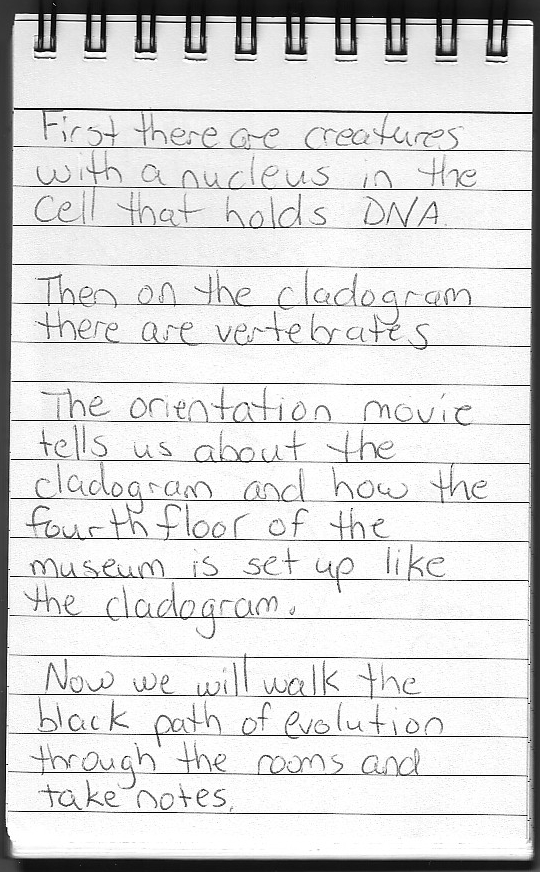 First there are creatures
with a nucleus in the
Cell that holds DNA.
Then on the cladogram
there are vertebrates
The orientation movie
tells us about the
cladogram and how the
fourth floor of the
museum is set up like
the cladogram.
Now we will walk the
black path of evolution
through the rooms and
take notes.